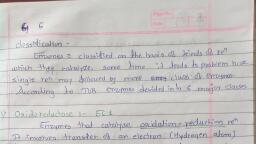 6
classification -
Enzymes is classified on the basis of kinds of rxn
which they catalyze. some time it leads to problem bcoz
single rxn may followed by more class of Enzymes.
According to IUB Enzymes divided into 6 major classes
Oxidoreductase :- EC1
Enzymes that catalyse oxidation-reduction rxn
It involves transfer of an electron (Hydrogen atom)